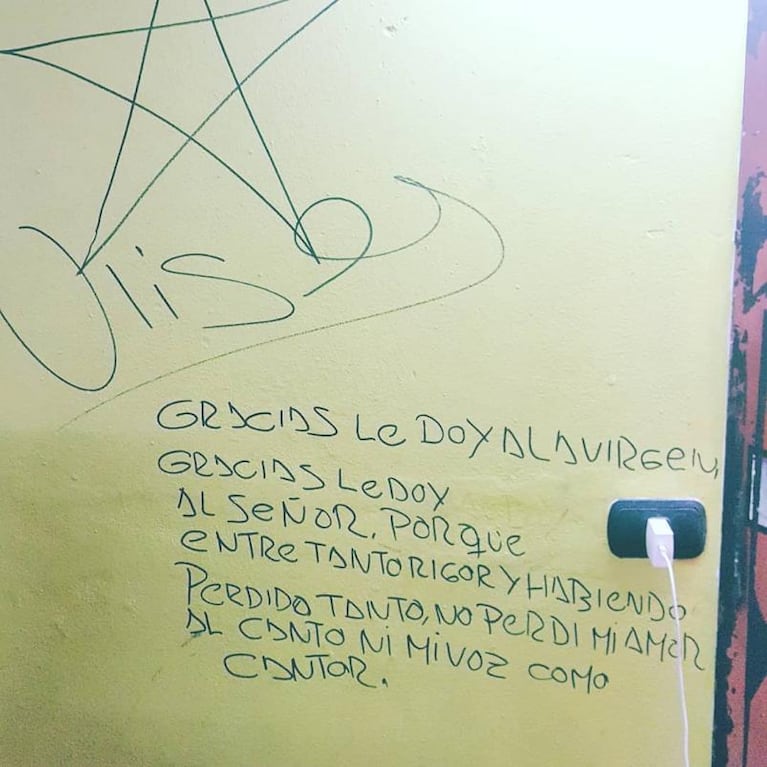 Ulises
GRACIAS Le DOY A LA VIRGeN,
GRACIAS Le DOY
AL SeÑOR, PORQUe
eNTRe TANTO RIGOR Y HABIENDO
PeRDIDO TANTO, NO PeRDI Mi AMOR
AL CANTO Ni Mi VOZ COMO
CANTOR.